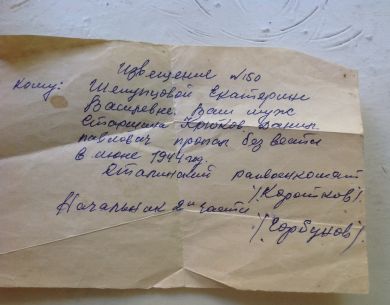 Извещение №150
Кому: Шемупцовой Екатерин
Васильевне. Ваш муж
старшина Крюков Данил
павлович пропал без вести
в июне 1944 год.
Сталинский райвоенкомат
/Коротков/.
Начальник 2й части
/Горбунов/.